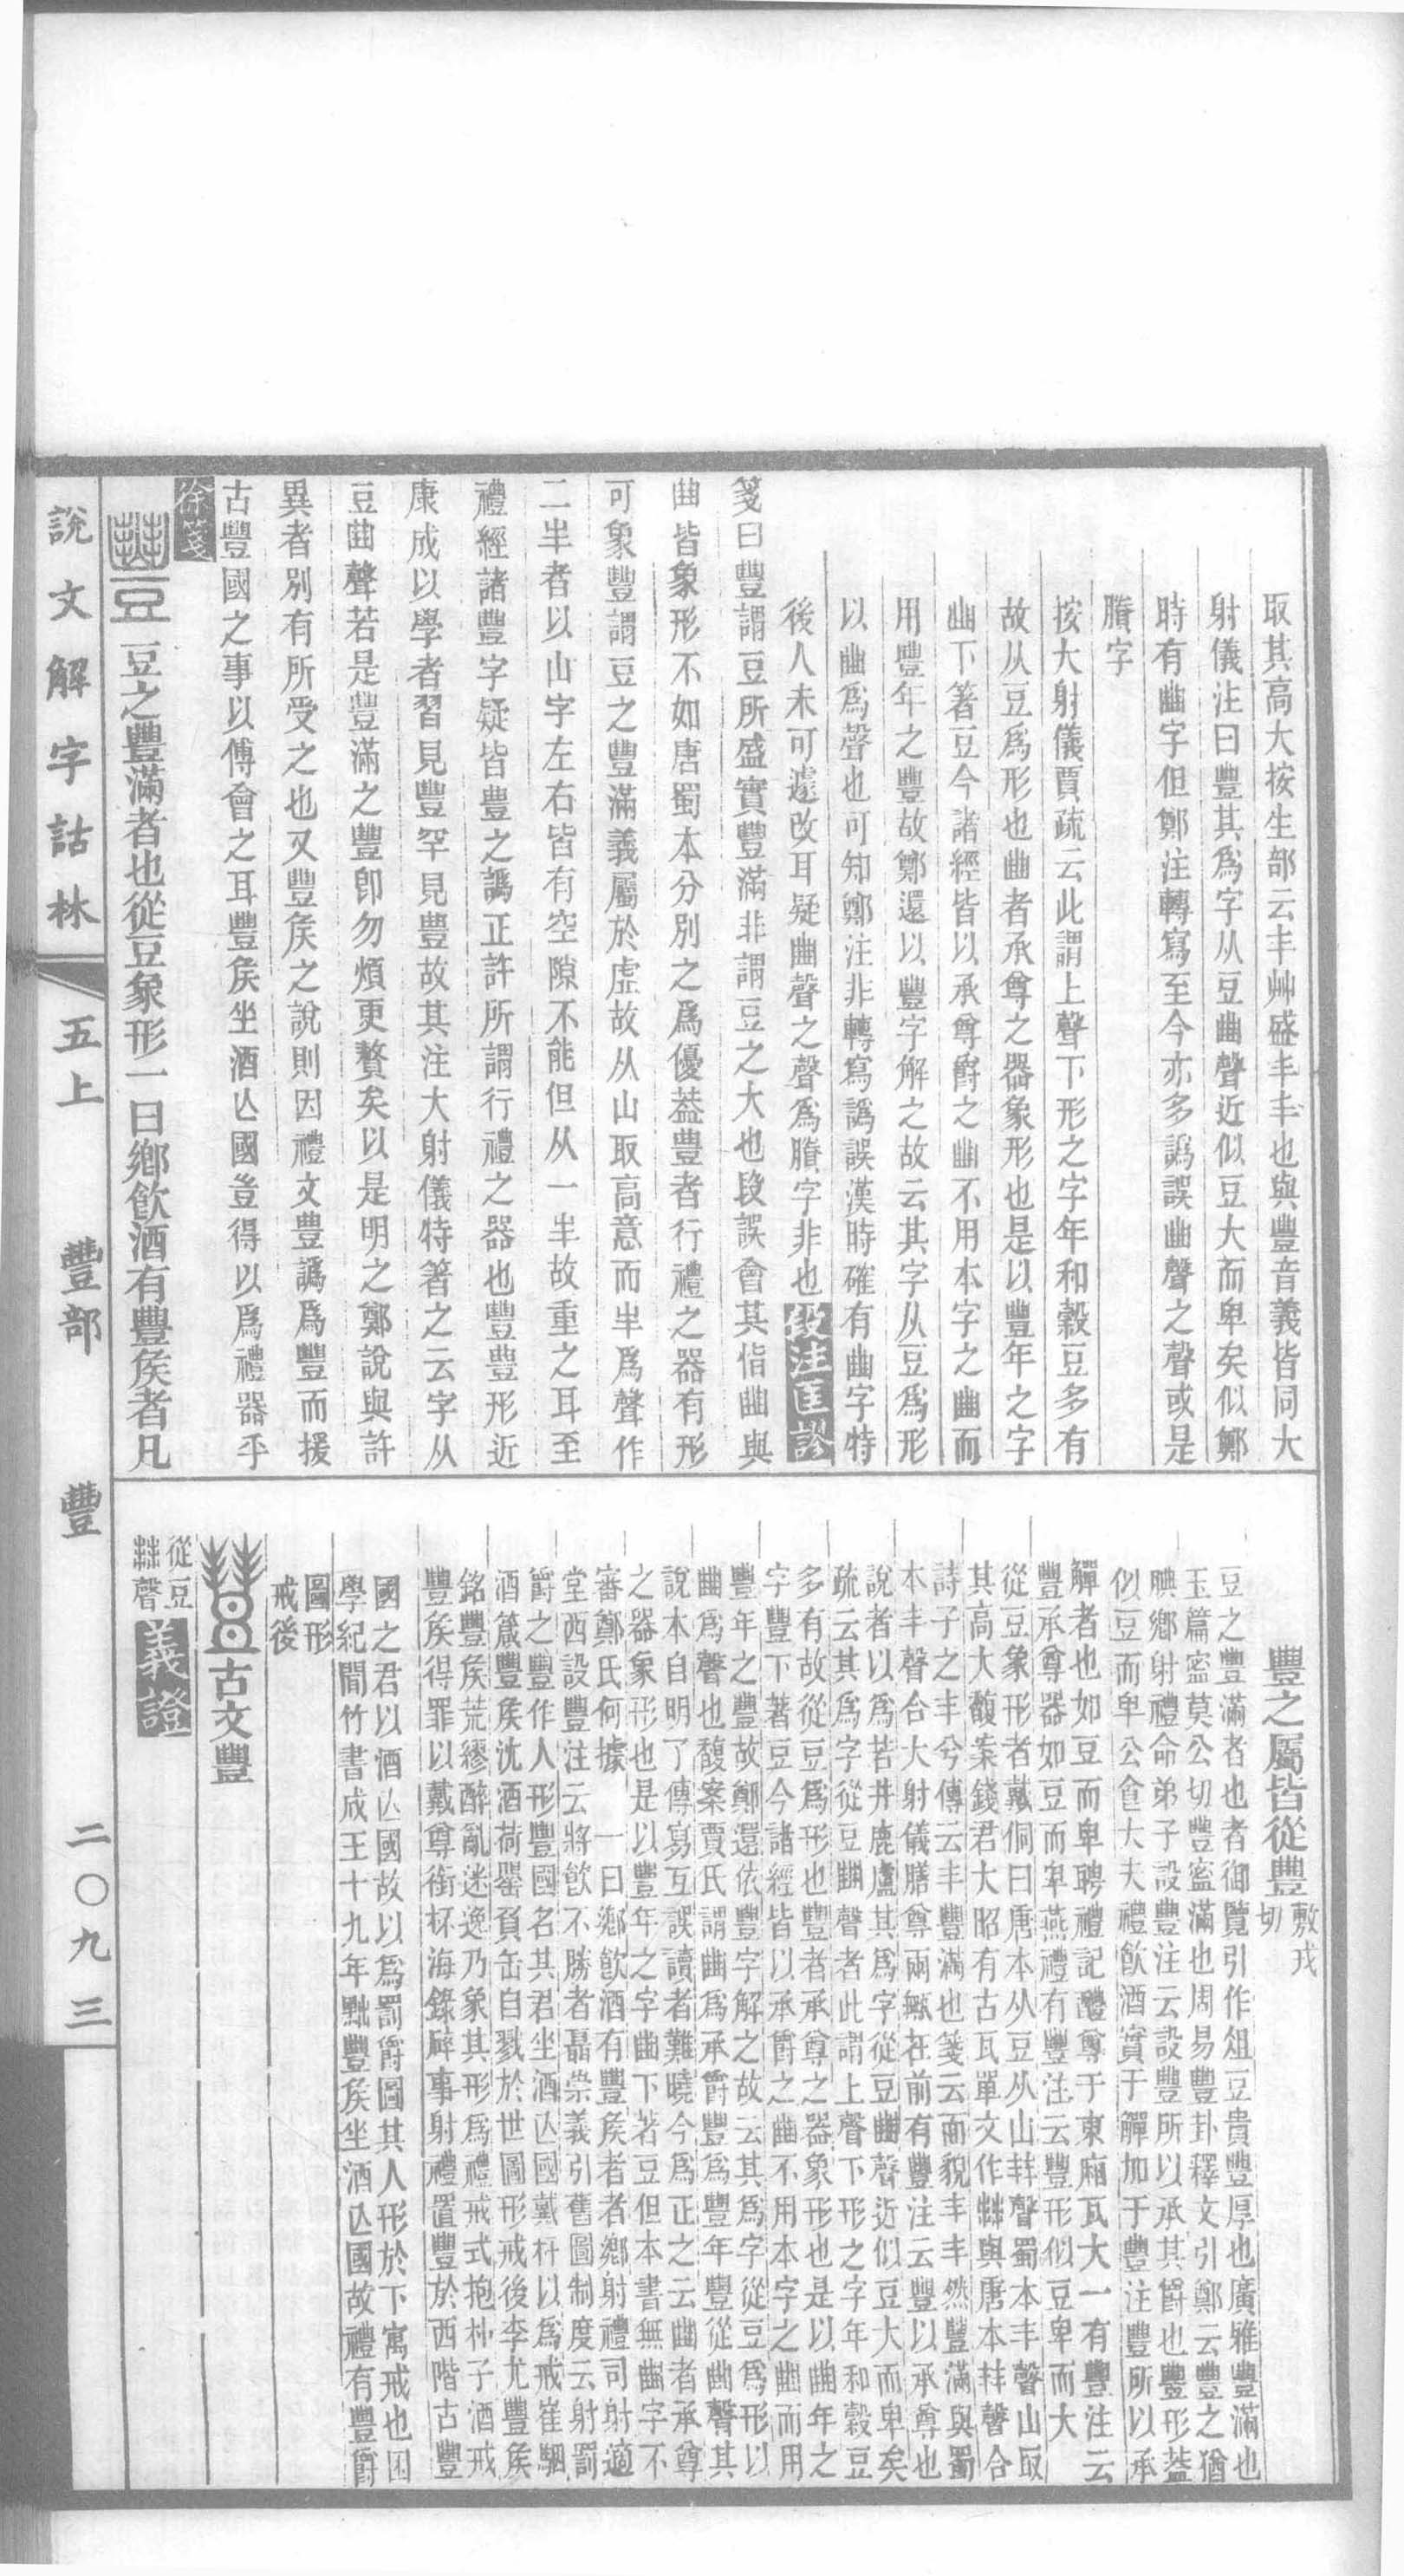 取其高大按生部云丰艸盛丰丰也與豐音義皆同大
射儀注曰豐其爲字从豆𠁳聲近似豆大而卑矣似鄭
時有𠁳字但鄭注轉寫至今亦多譌誤𠁳聲之聲或是
贋字
按大射儀賈疏云此謂上聲下形之字年和穀豆多有
故从豆爲形也𠁳者承尊之器象形也是以豐年之字
𠁳下著豆今諸經皆以承尊爵之𠁳不用本字之𠁳而
用豐年之豐故鄭還以豐字解之故云其字从豆爲形
以𠁳爲聲也可知鄭注非轉寫譌誤漢時確有𠁳字特
後人未可遽改耳疑𠁳聲之聲爲贋字非也段注匡謬
箋曰豐謂豆所盛實豐滿非謂豆之大也段誤會其恉𠁳與
曲皆象形不如唐蜀本分別之爲優葢豊者行禮之器有形
可象豐謂豆之豐滿義屬於虛故从山取高意而丰爲聲作
二丰者以山字左右皆有空隙不能但从一丰故重之耳至
禮經諸豐字疑皆豊之譌正許所謂行禮之器也豐豊形近
康成以學者習見豐罕見豊故其注大射儀特箸之云字从
豆𠁳聲若是豐滿之豐卽勿煩更贅矣以是明之鄭說與許
異者別有所受之也又豐矦之說則因禮文豊譌爲豐而援
古豐國之事以傅會之耳豐矦坐酒亾國豈得以爲禮器乎
徐箋
豆之豐滿者也從豆象形一曰鄉飮酒有豐矦者凡
豐之屬皆從豐敷戎切
豆之豐滿者也者御覽引作俎豆貴豐厚也廣雅豐滿也
玉篇䆬莫公切豐䆬滿也周易豐卦釋文引鄭云豐之猶
腆鄉射禮命弟子設豐注云設豐所以承其爵也豐形葢
似豆而卑公食大夫禮飮酒實于觶加于豐注豐所以承
觶者也如豆而卑聘禮記醴尊于東廂瓦大一有豐注云
豐承尊器如豆而卑燕禮有豐注云豐形似豆卑而大
從豆象形者戴侗曰唐本从豆从山𡴀聲蜀本丰聲山取
其高大馥案錢君大昭有古瓦單文作𠁳與唐本𡴀聲合
詩子之丰兮傳云丰豐滿也箋云面貌丰丰然豐滿與蜀
本丰聲合大射儀膳尊兩甒在前有豐注云豐以承尊也
說者以爲若井鹿盧其爲字從豆𠁳聲近似豆大而卑矣
疏云其爲字從豆𠁳聲者此謂上聲下形之字年和穀豆
多有故從豆爲形也豐者承尊之器象形也是以𠁳年之
字豐下著豆今諸經皆以承爵之𠁳不用本字之𠁳而用
豐年之豐故鄭還依豐字解之故云其爲字從豆爲形以
𠁳爲聲也馥案賈氏謂𠁳爲承爵豐爲豐年豐從𠁳聲其
說本自明了傳寫互誤讀者難曉今爲正之云𠁳者承尊
之器象形也是以豐年之字𠁳下著豆但本書無𠁳字不
審鄭氏何據　一曰鄉飮酒有豐矦者者鄉射禮司射適
堂西設豐注云將飮不勝者聶崇義引舊圖制度云射罰
爵之豐作人形豐國名其君坐酒亾國戴杅以爲戒崔駰
酒箴豐矦沈酒荷罌負缶自戮於世圖形戒後李尤豐矦
銘豐矦荒繆醉亂迷逸乃象其形爲禮戒式抱朴子酒戒
豐矦得罪以戴尊銜杯海錄碎事射禮置豐於西階古豐
國之君以酒亾國故以爲罰爵圖其人形於下寓戒也困
學紀聞竹書成王十九年黜豐矦坐酒亾國故禮有豐爵
圖形
戒後
古文豐
從豆
𠁳聲義證
說文解字詁林　五上　豐部　豐　二〇九三